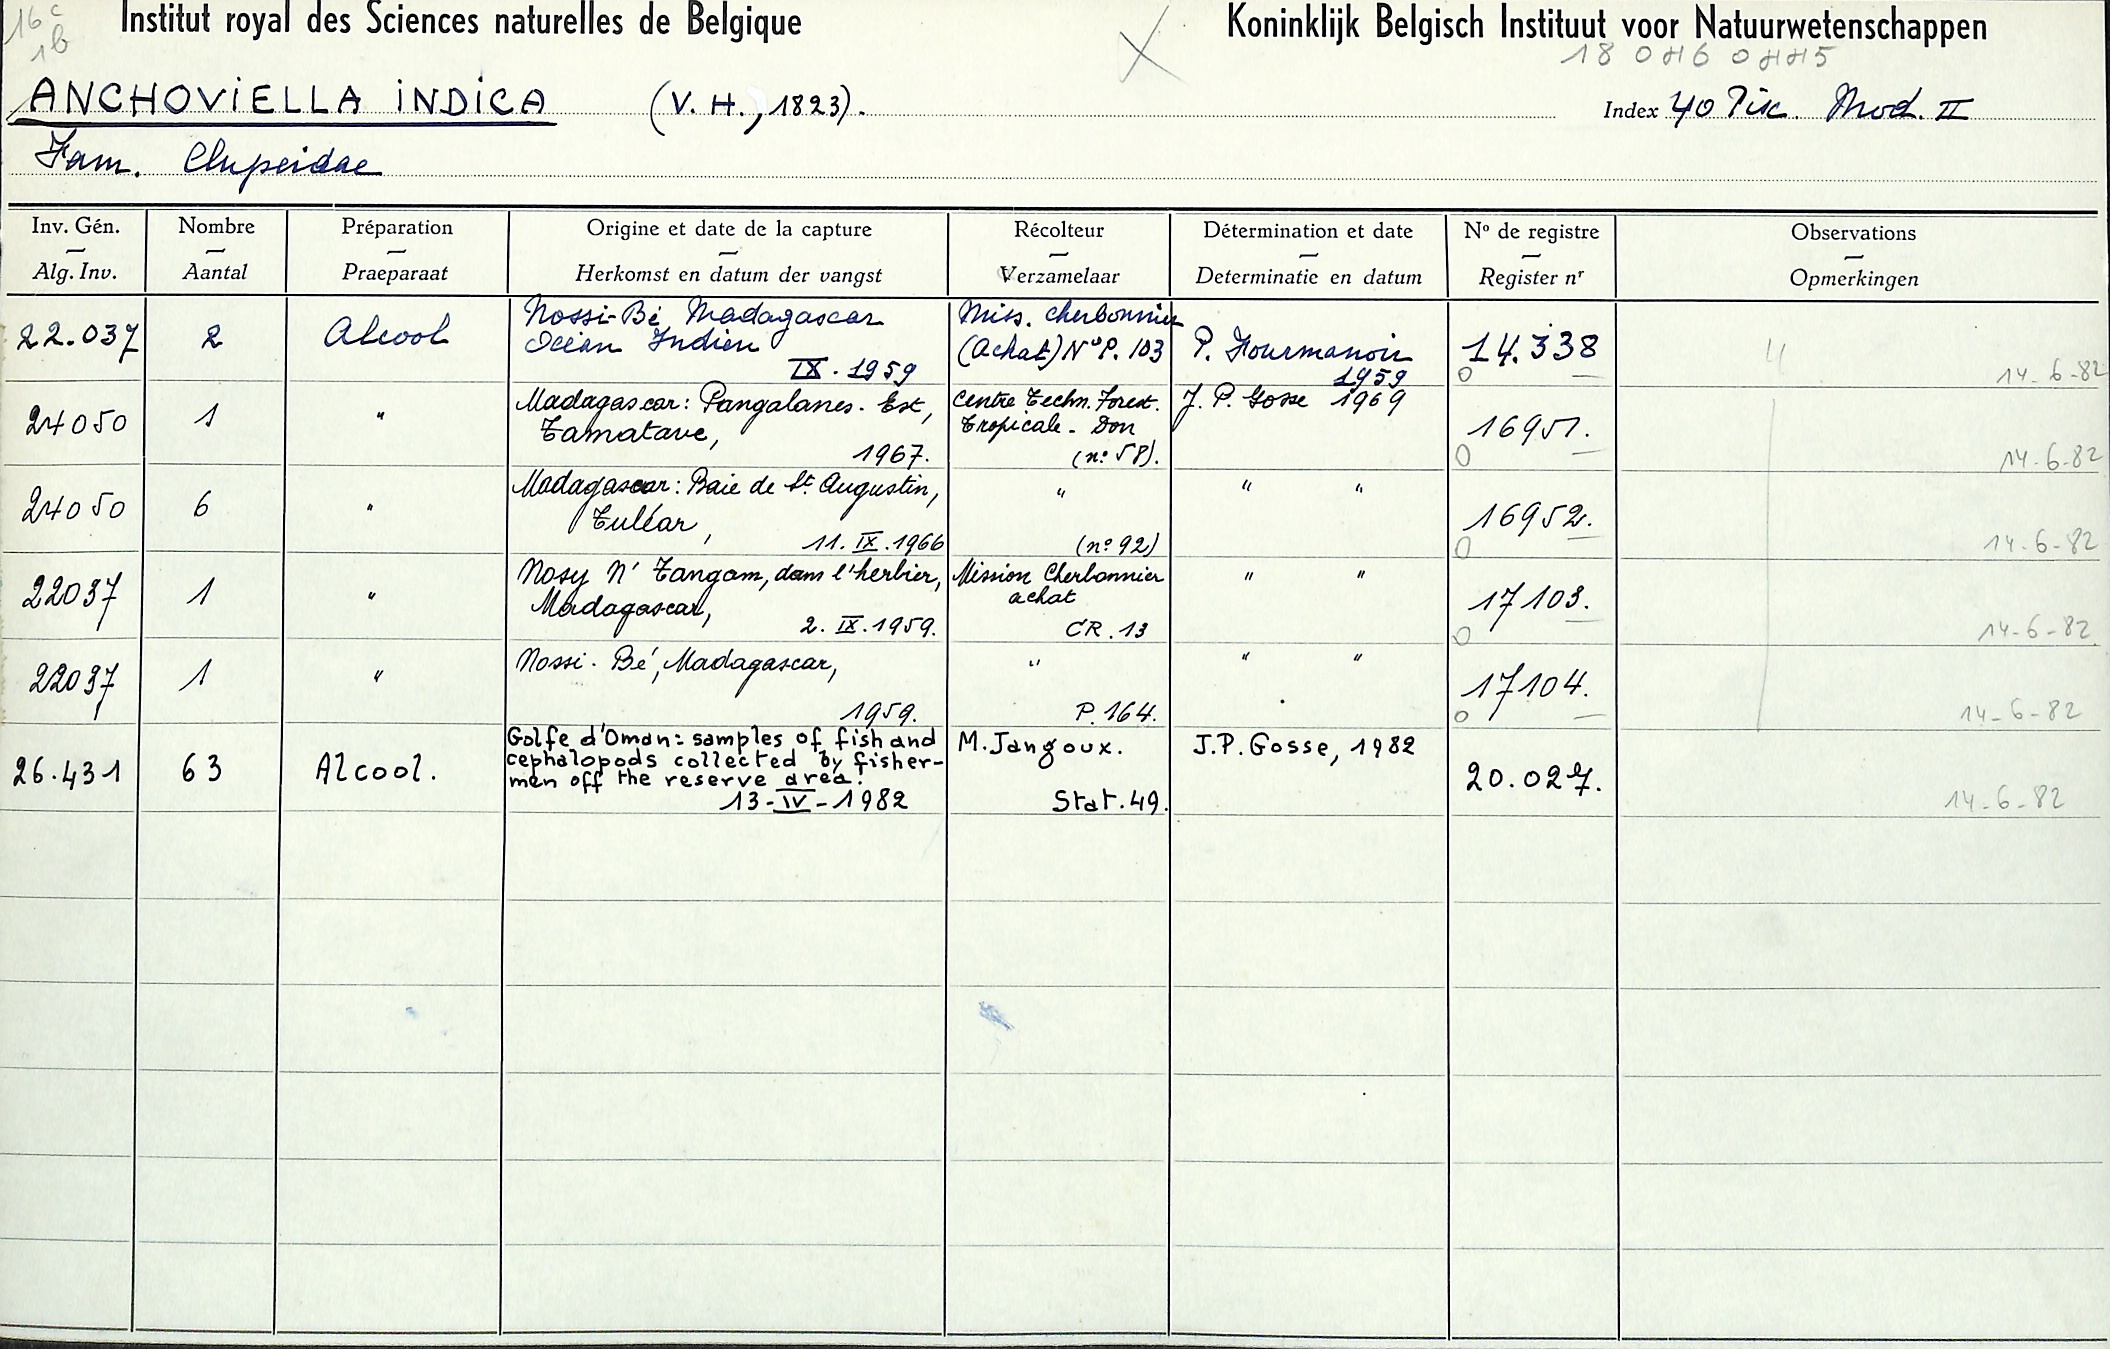 16c
1b
Institut royal des Sciences naturelles de Belgique
Koninklijk Belgisch Instituut voor Natuurwetenschappen
ANCHOVIELLA INDICA (V. H., 1823).
Index 40 Pisc. Mod. II
Fam. Clupeidae
Inv. Gén. Nombre Préparation Origine et date de la capture Récolteur Détermination et date No de registre Observations
Alg. Inv. Aantal Praeparaat Herkomst en datum der vangst Verzamelaar Determinatie en datum Register nr Opmerkingen
22.037 2 Alcool
Nossi-Bé Madagascar
Océan Indien
IX. 1959
Miss. Cherbonnier
(Achat) No P. 103
P. Fourmanoir
1959
14.338
14-6-82
24050 1 "
Madagascar: Pangalanes-Est,
Tamatave,
1967.
Centre Techn. Forest.
Tropicale - Don
(no 58).
J. P. Gosse 1969
16951.
14-6-82
24050 6 "
Madagascar: Baie de St. Augustin,
Tuléar,
11. IX. 1966
"
(no 92)
" "
16952.
14-6-82
22037 1 "
Nosy N' Tangam, dans l'herbier,
Madagascar,
2. IX. 1959.
Mission Cherbonnier
achat
CR. 13
" "
17103.
14-6-82
22037 1 "
Nossi-Bé, Madagascar,
1959.
"
P. 164.
" "
17104.
14-6-82
26.431 63 Alcool.
Golfe d'Oman: samples of fish and
cephalopods collected by fisher-
men off the reserve area.
13-IV-1982
M. Jangoux.
Stat. 49.
J.P. Gosse, 1982
20.027.
14-6-82